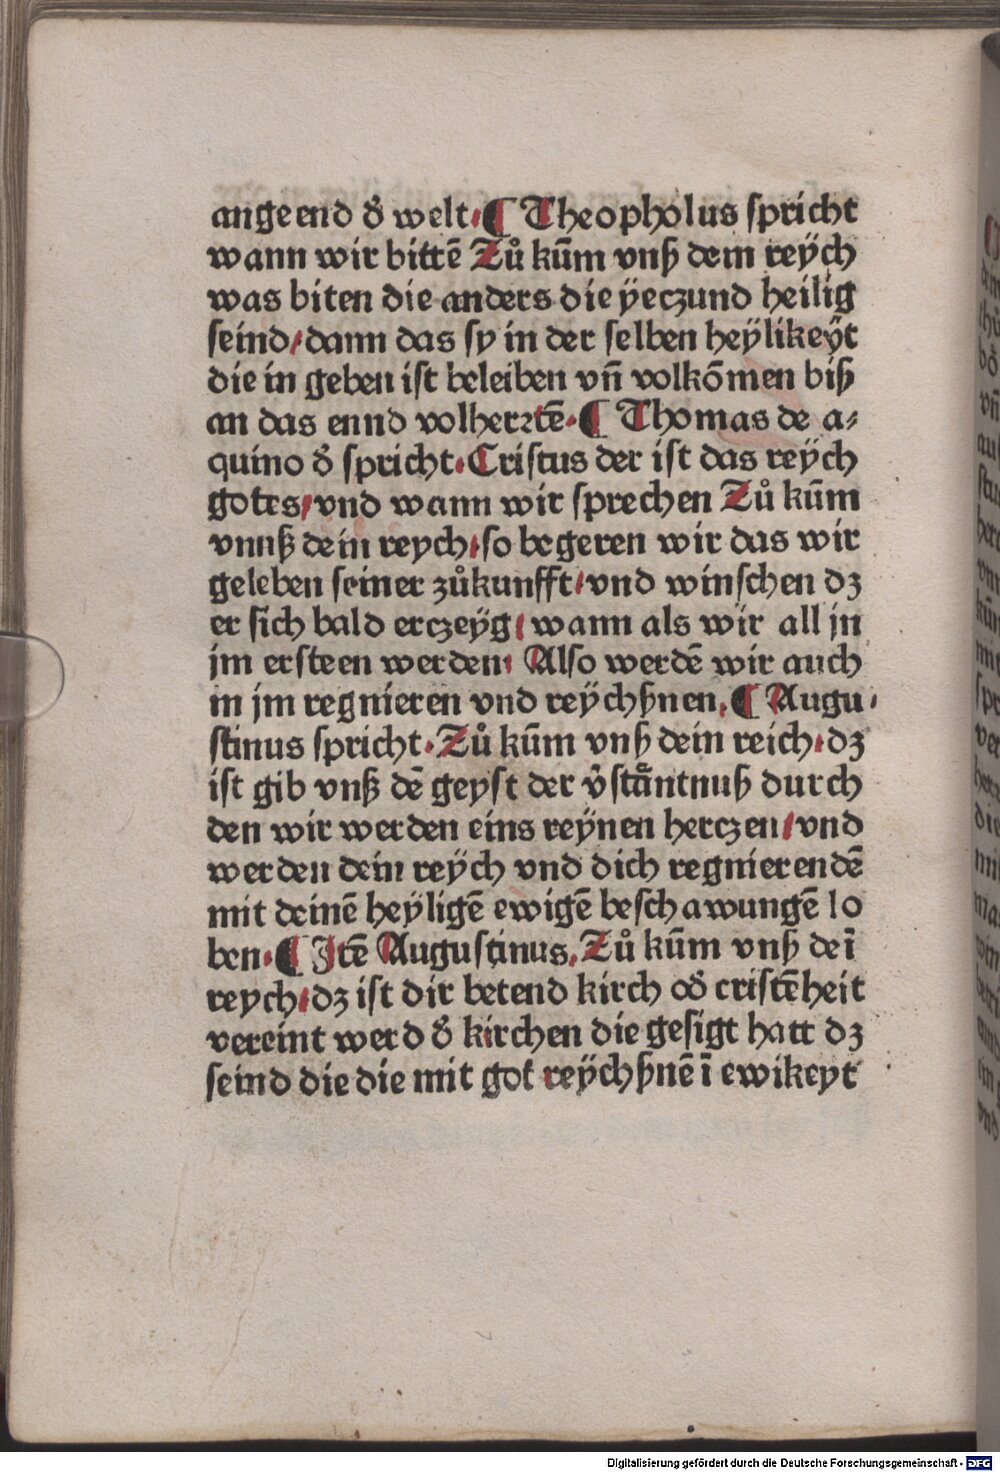 angeend dʼ welt. ¶ Theopholus spricht
wann wir bittē Zů kūm vnß dem reÿch
was biten die anders die ÿeczund heilig
seind / dann das sy in der selben heÿlikeÿt
die in geben ist beleiben vn̄ volkōmen biß
an das ennd volherztē. ¶ Thomas de a⸗
quino dʼ spricht. Cristus der ist das reÿch
gotes / vnd wann wir sprechen Zů kūm
vnnß dein reych / so begeren wir das wir
geleben seiner zůkunfft / vnd winschen dz
er sich bald erczeÿg / wann als wir all jn
jm ersteen werden. Also werdē wir auch
in jm regnieren vnd reÿchßnen. ¶ Augu⸗
stinus spricht. Zů kūm vnß dein reich. dz
ist gib vnß dē geyst der vʼstāntnuß durch
den wir werden eins reÿnen herczen / vnd
werden dein reÿch vnd dich regnierendē
mit deinē heÿligē ewigē beschawungē lo
ben. ¶ Jtē Augustinus. Zů kūm vnß deī
reych / dz ist dir betend kirch odʼ cristēheit
vereint werd dʼ kirchen die gesigt hatt dz
seind die die mit got reÿchßnē ī ewikeyt
Digitalisierung gefördert durch die Deutsche Forschungsgemeinschaft - DFG